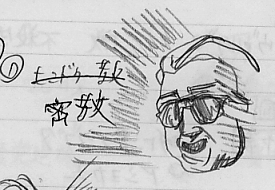 ① ヒンドゥー教
密教